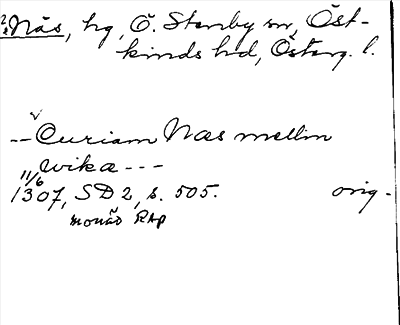 2/2 Näs, hg, Ö. Stenby sn, Öst-
kinds hd, Österg. l.
-- Curiam Næs mellin
wika ---
11/6
1307, SD 2, s. 505. orig.
RAp